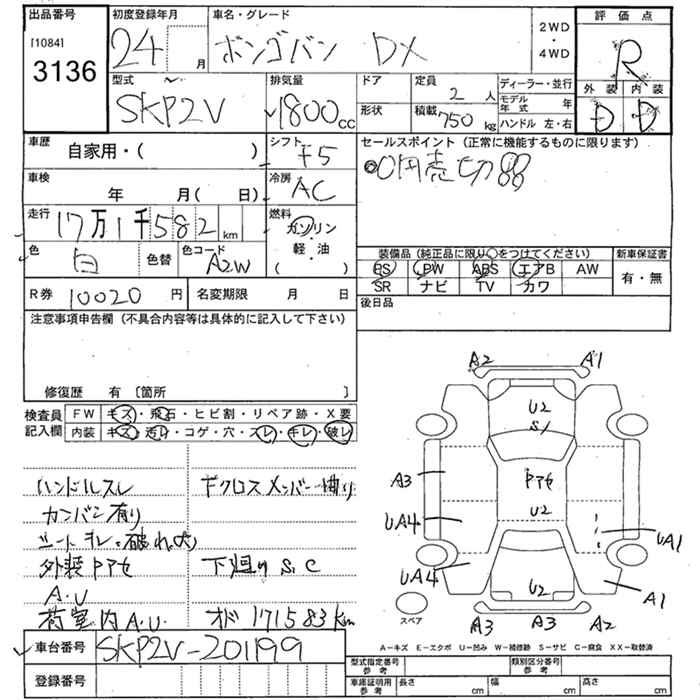 出品番号 初度登録年月 車名・グレード 2WD・4WD 評価点
[1084]
3136 24 月 ボンゴバン DX R
外装 内装
D D
型式 排気量 ドア 定員 2人 ディーラー・並行
SKP2V 1800cc 形状 積載 750kg モデル年式 年
ハンドル 左・右
車歴 シフト セールスポイント (正常に機能するものに限ります)
自家用・( ) F5 ◉0円売切!!
車検 冷房
年 月( 日) AC
走行 17万1千582km 燃料
ガソリン・軽・油
( )
色 白 色替 色コード A2W
装備品(純正品に限り○をつけてください) 新車保証書
PS PW ABS エアB AW 有・無
SR ナビ TV カワ
R券 10020円 名変期限 月 日 後日品
注意事項申告欄 (不具合内容等は具体的に記入して下さい)
修復歴 有 〔箇所 〕
検査員記入欄 FW キズ・飛石・ヒビ割・リペア跡・X要
内装 キズ・汚れ・コゲ・穴・スレ・キレ・破レ
ハンドルスレ
カンバン有り
シートキレ・破れ(大)
外装Pアセ
A.U
荷室内A.U.
下クロスメンバー曲り
下廻りS.C
オド171583km
A2 A1
U2
S1
A3 Pアセ
U2
UA4 UA1
UA4 A1
U2
スペア A3 A3 A2
A−キズ E−エクボ U−凹み W−補修跡 S−サビ C−腐食 XX−取替済
車台番号 SKP2V-201199
登録番号
型式指定番号 参考 類別区分番号 参考
車庫証明用 参考 長さ cm 幅 cm 高さ cm